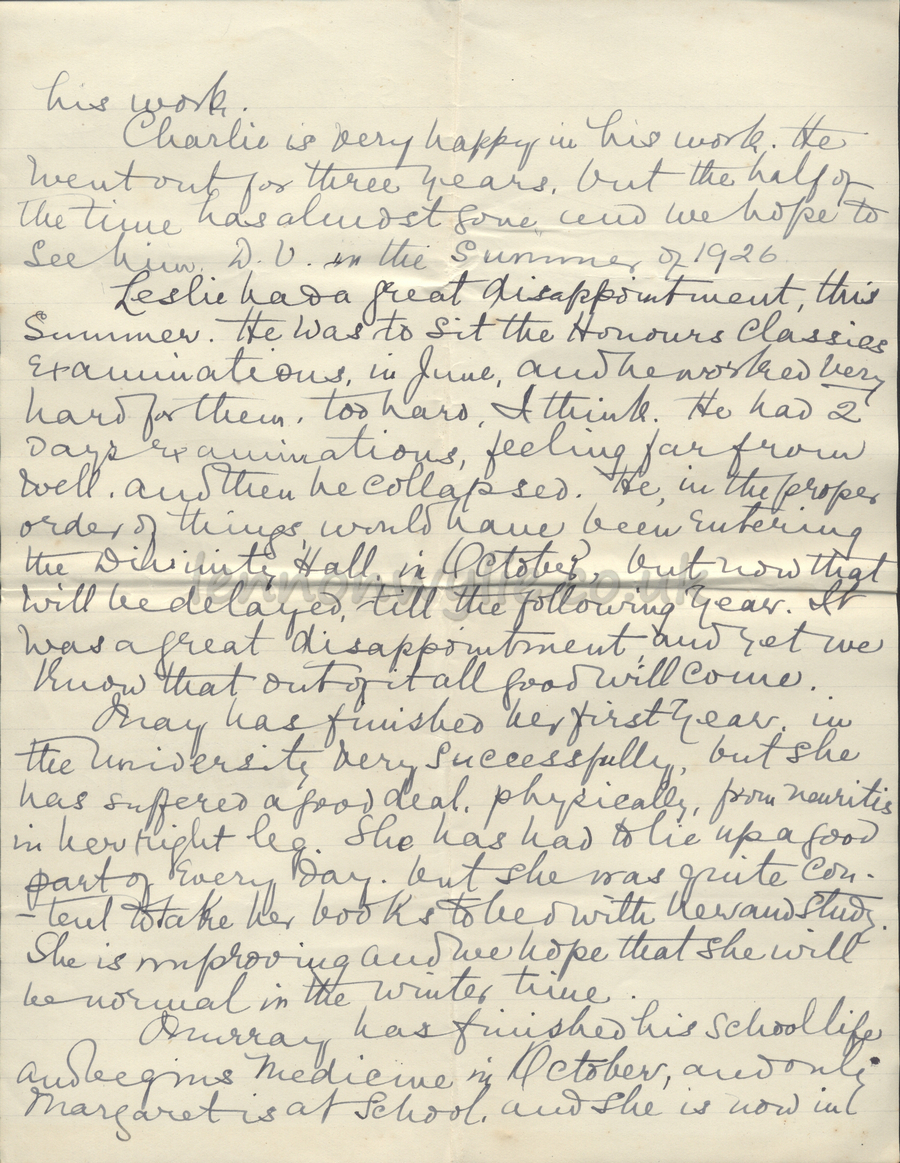 his work.
Charlie is very happy in his work. He
went out for three years, but the half of
the time has almost gone, and we hope to
see him, D.V. in the Summer of 1926.
Leslie had a great disappointment, this
Summer. He was to sit the Honours Classics
Examinations, in June, and he worked very
hard for them, too hard, I think. He had 2
Days Examinations, feeling far from
well, and then he collapsed. He, in the proper
order of things, would have been entering
the Divinity Hall, in October, but now that
lennonwylie.co.uk
will be delayed, till the following year. It
was a great disappointment, and yet we
know that out of it all good will come.
May has finished her first year, in
the University very successfully, but she
has suffered a good deal, physically, from neuritis
in her right leg. She has had to lie up a good
part of every day, but she was quite con-
-tent to take her books to bed with her and study.
She is improving and we hope that she will
be normal in the winter time.
Murray has finished his school life
and begins Medicine in October, and only
Margaret is at School, and she is now in